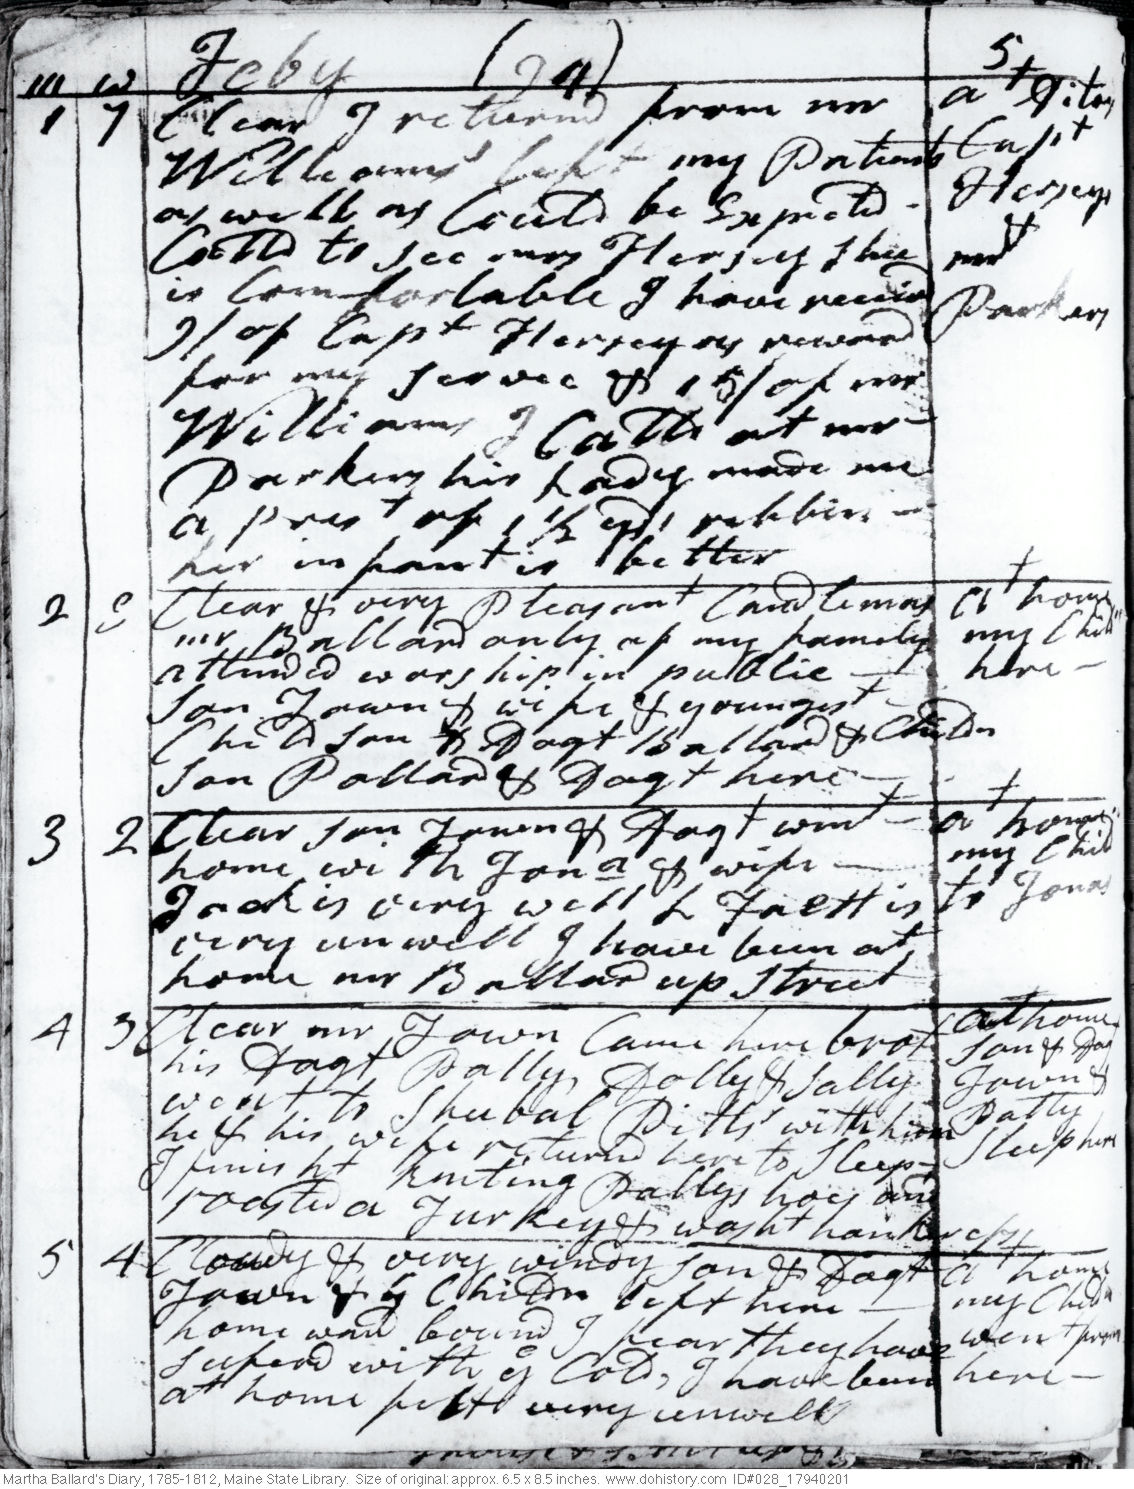 m w Feby (94) 5
1 7 Clear I returnd from mr
Williams' left my Patients
as well as Could be Expectd -
Calld to see mrs Hersey shee
is Comfortable I have receivd
of Capt Hersey as reward
for my service & 15/ of mr
Williams I Calld at mr
Parkers his Lady made me
a prest of 1 1/2 yds ribbin -
her infant is better
at Ditoes
Capt
Herseys
&
mr
Parkers
2 E Clear & very Pleasant Candlemas
mr Ballard only of my family
attinded worship in publice -
son Town & wife & youngest
Child son & Dagt Ballard & Childn
son Pollard & Dagt here -
at home
my Child"
here -
3 2 Clear son Town & Dagt wint
home with Jona & wife -
Jack is very well
very unwell I have been at
home mr Ballard up Street
at home
my Child
to Jonas
4 3 Clear mr Town Came here brot
his Dagt Patty, Dolly & Sally
went to Shubal Pitts' with him
he & his wife returnd here to sleep -
I finisht kniting Pattys hoes and
roasted a Turkey & washt hankercfs
at home
son & Dagt
Town &
Patty
sleep here
5 4 Cloudy & very windy son & Dagt
Town & y Childn left here -
home ward bound I fear they have
suferd with ye Cold, I have been
at home felt very unwell
at home
my Childn
went from
here -
Martha Ballard's Diary, 1785-1812, Maine State Library. Size of original: approx. 6.5 x 8.5 inches. www.dohistory.com ID#028_17940201